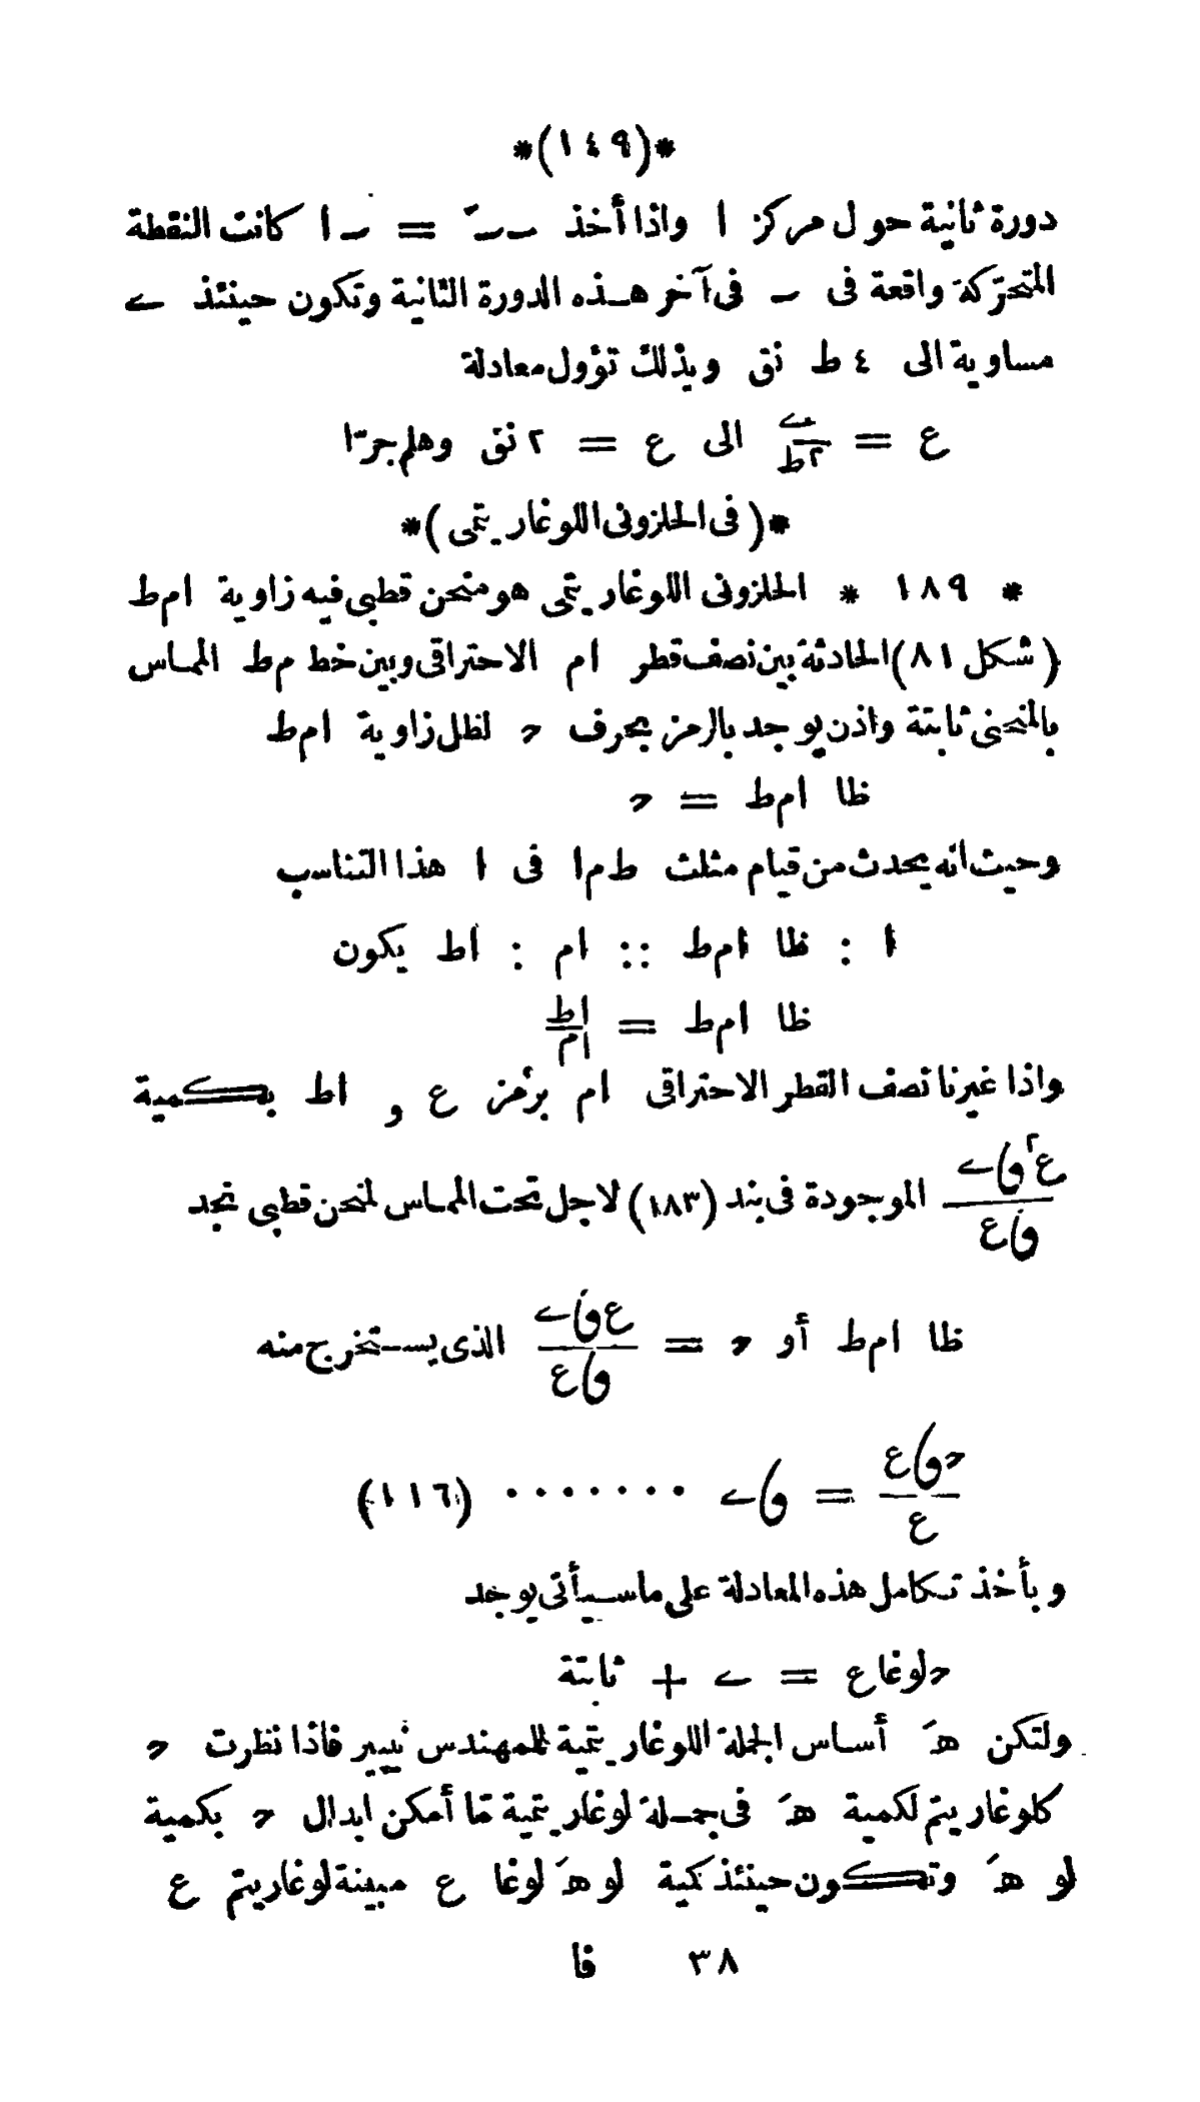 *(١٤٩)*
دورة ثانية حول مركز ا واذا أخذ ٮٮَ = ٮا كانت النقطة
المتحرّكة واقعة فى ٮ فى آخر هذه الدورة الثانية وتكون حينئذ ے
مساوية الى ٤ ط نق وبذلك تؤول معادلة
ع = ے/٢ط الى ع = ٢ نق وهلم جرّا
*(فى الحلزونى اللوغاريتمى)*
* ١٨٩ * الحلزونى اللوغاريتمى هو منحن قطبى فيه زاوية ام ط
(شكل ٨١) الحادثة بين نصف قطر ام الاحتراقى وبين خط م ط المماس
بالمنحنى ثابتة واذن يوجد بالرمز بحرف ح لظل زاوية ام ط
ظا ام ط = ح
وحيث انه يحدث من قيام مثلث ط م ا فى ا هذا التناسب
١ : ظا ام ط :: ام : اط يكون
ظا ام ط = اط/ام
واذا غيرنا نصف القطر الاحتراقى ام برمز ع و اط بكمية
ع٢ ںے/ںع الموجودة فى بند (١٨٣) لاجل تحت المماس لمنحن قطبى نجد
ظا ام ط أو ح = ع ںے/ںع الذى يستخرج منه
ح ںع/ع = ںے ....... (١١٦)
وبأخذ تكامل هذه المعادلة على ما سيأتى يوجد
ح لوغا ع = ے + ثابتة
ولتكن هَ أساس الجملة اللوغاريتمية للمهندس نيپير فاذا نظرت ح
كلوغاريتم لكمية هَ فى جملة لوغاريتمية مّا أمكن ابدال ح بكمية
لو هَ وتكون حينئذ كمية لو هَ لوغا ع مبينة لوغاريتم ع
٣٨ فا